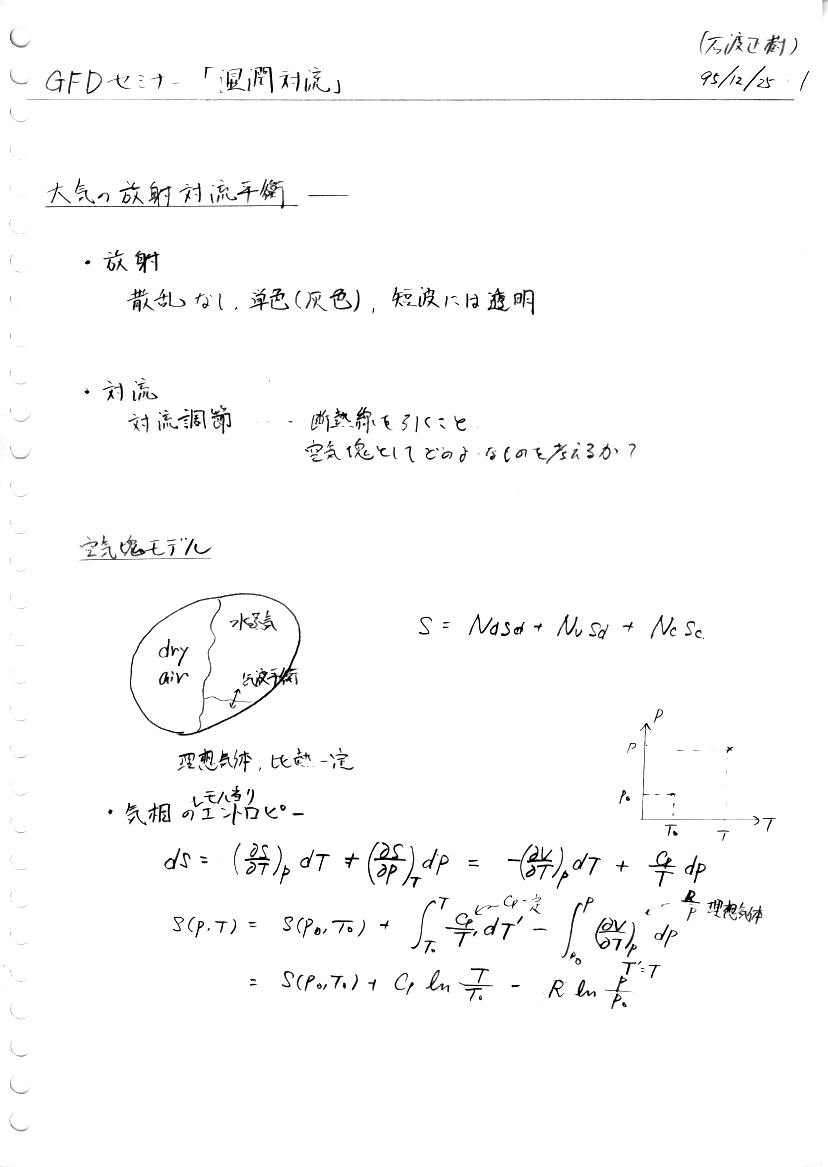 (石渡正樹)
GFDセミナー「湿潤対流」 95/12/25 1
大気の放射対流平衡 ——
・放射
散乱なし, 単色(灰色), 短波には透明
・対流
対流調節 ---- 断熱線を引くこと.
空気塊としてどのようなものを考えるか?
空気塊モデル
水蒸気
dry
air
気液平衡
S = Nd Sd + Nv Sd + Nc Sc.
理想気体, 比熱一定
P
P
P₀
T₀ T T
1モル当り
・気相のエントロピー
dS = (∂S/∂T)_P dT + (∂S/∂P)_T dP = -(∂V/∂T)_P dT + Cp/T dp
S(P,T) = S(P₀,T₀) + ∫_{T₀}^{T} Cp/T' dT' - ∫_{P₀}^{P} (∂V/∂T)_P dp
Cp一定
R/P 理想気体
T'=T
= S(P₀,T₀) + Cp ln T/T₀ - R ln P/P₀